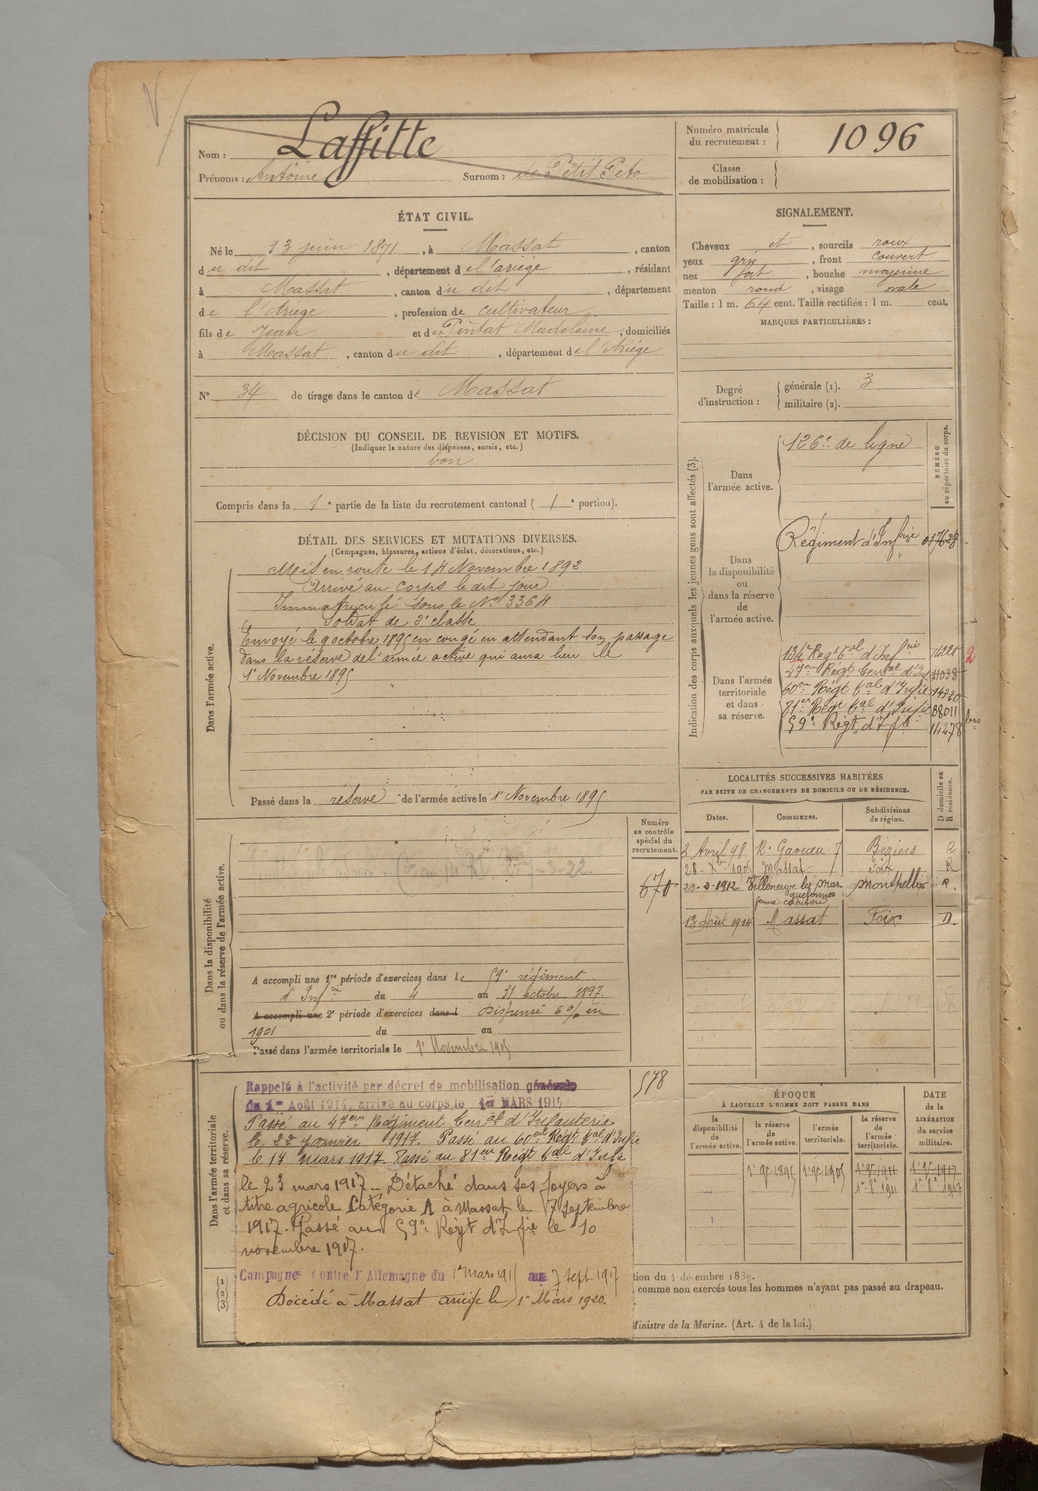 Nom : Laffitte
Prénoms : Antoine Surnom : de Petit Peto
Numéro matricule du recrutement : 1096
Classe de mobilisation :
ÉTAT CIVIL.
Né le 13 juin 1871, à Massat, canton
du dit, département de l'ariège, résidant
à Massat, canton du dit, département
de l'Ariège, profession de cultivateur
fils de Jean et de Pintat Madeleine, domiciliés
à Massat, canton du dit, département de l'Ariège
N° 34 de tirage dans le canton de Massat
SIGNALEMENT.
Cheveux et, sourcils roux
yeux gris, front couvert
nez fort, bouche moyenne
menton rond, visage ovale
Taille : 1 m. 64 cent. Taille rectifiée : 1 m. cent.
MARQUES PARTICULIÈRES :
Degré d'instruction : générale (1). 3
militaire (2).
DÉCISION DU CONSEIL DE REVISION ET MOTIFS.
(Indiquer la nature des dispenses, sursis, etc.)
bon
Compris dans la 1e partie de la liste du recrutement cantonal ( 1e portion).
DÉTAIL DES SERVICES ET MUTATIONS DIVERSES.
(Campagnes, blessures, actions d'éclat, décorations, etc.)
Dans l'armée active.
Mis en route le 14 Novembre 1892
Arrivé au corps le dit jour
Immatriculé sous le No 3364
Soldat de 2e classe
Envoyé le 9 octobre 1895 en congé en attendant son passage
dans la réserve de l'armée active qui aura lieu le
1r Novembre 1895
Passé dans la réserve de l'armée active le 1r Novembre 1895
Indication des corps auxquels les jeunes gens sont affectés (3).
NUMÉRO au répertoire du corps.
Dans l'armée active.
126e de ligne
Dans la disponibilité ou dans la réserve de l'armée active.
Régiment d'Infrie 017628
Dans l'armée territoriale et dans sa réserve.
134e Régt tal d'Infrie
47me Régt territal d'Inf
60me Régt tal d'Infie
81me Régt tal d'Infie
59e Régt d'Ifie
2
bis
LOCALITÉS SUCCESSIVES HABITÉES
PAR SUITE DE CHANGEMENTS DE DOMICILE OU DE RÉSIDENCE.
Dates. Communes. Subdivisions de région. D domicile ou R résidence.
3 Avril 98 Béziers R
Massat Foix R
22-2-1912 Villeneuve les Mag Montpellier R.
13 Août 1914 Massat Foix D.
Numéro au contrôle spécial du recrutement.
670
Dans la disponibilité ou dans la réserve de l'armée active.
A accompli une 1re période d'exercices dans le 59e régiment
d'Infrie du 4 au 31 octobre 1897.
A accompli une 2e période d'exercices dans l Dispensé 6% en
1901 du au
Passé dans l'armée territoriale le 1r Novembre 1905
Dans l'armée territoriale et dans sa réserve.
578
Rappelé à l'activité par décret de mobilisation générale
du 1er Août 1914, arrivé au corps le 1er MARS 1915
Passé au 47eme Régiment territal d'Infanterie
le 22 janvier 1917. Passé au 60me Régt tal d'Infie
le 14 mars 1917. Passé au 81me Régt tal d'Infie
le 23 mars 1917. Détaché dans ses foyers à
titre agricole Catégorie A à Massat le 7 septembre
1917. Passé au 59e Régt d'Ifie le 10
novembre 1917.
Campagne contre l'Allemagne du 1er mars 1915 au 7 sept. 1917
Décédé à Massat ariège le 1er Mars 1920.
ÉPOQUE
À LAQUELLE L'HOMME DOIT PASSER DANS
la disponibilité de l'armée active. la réserve de l'armée active. l'armée territoriale. la réserve de l'armée territoriale. DATE de la LIBÉRATION du service militaire.
1r 9e 1895 1r 9e 1905 1r 9e 1911 1r 9e 1917
(1)
(2)
(3)
tion du 4 décembre 1889.
comme non exercés tous les hommes n'ayant pas passé au drapeau.
Ministre de la Marine. (Art. 4 de la loi.)